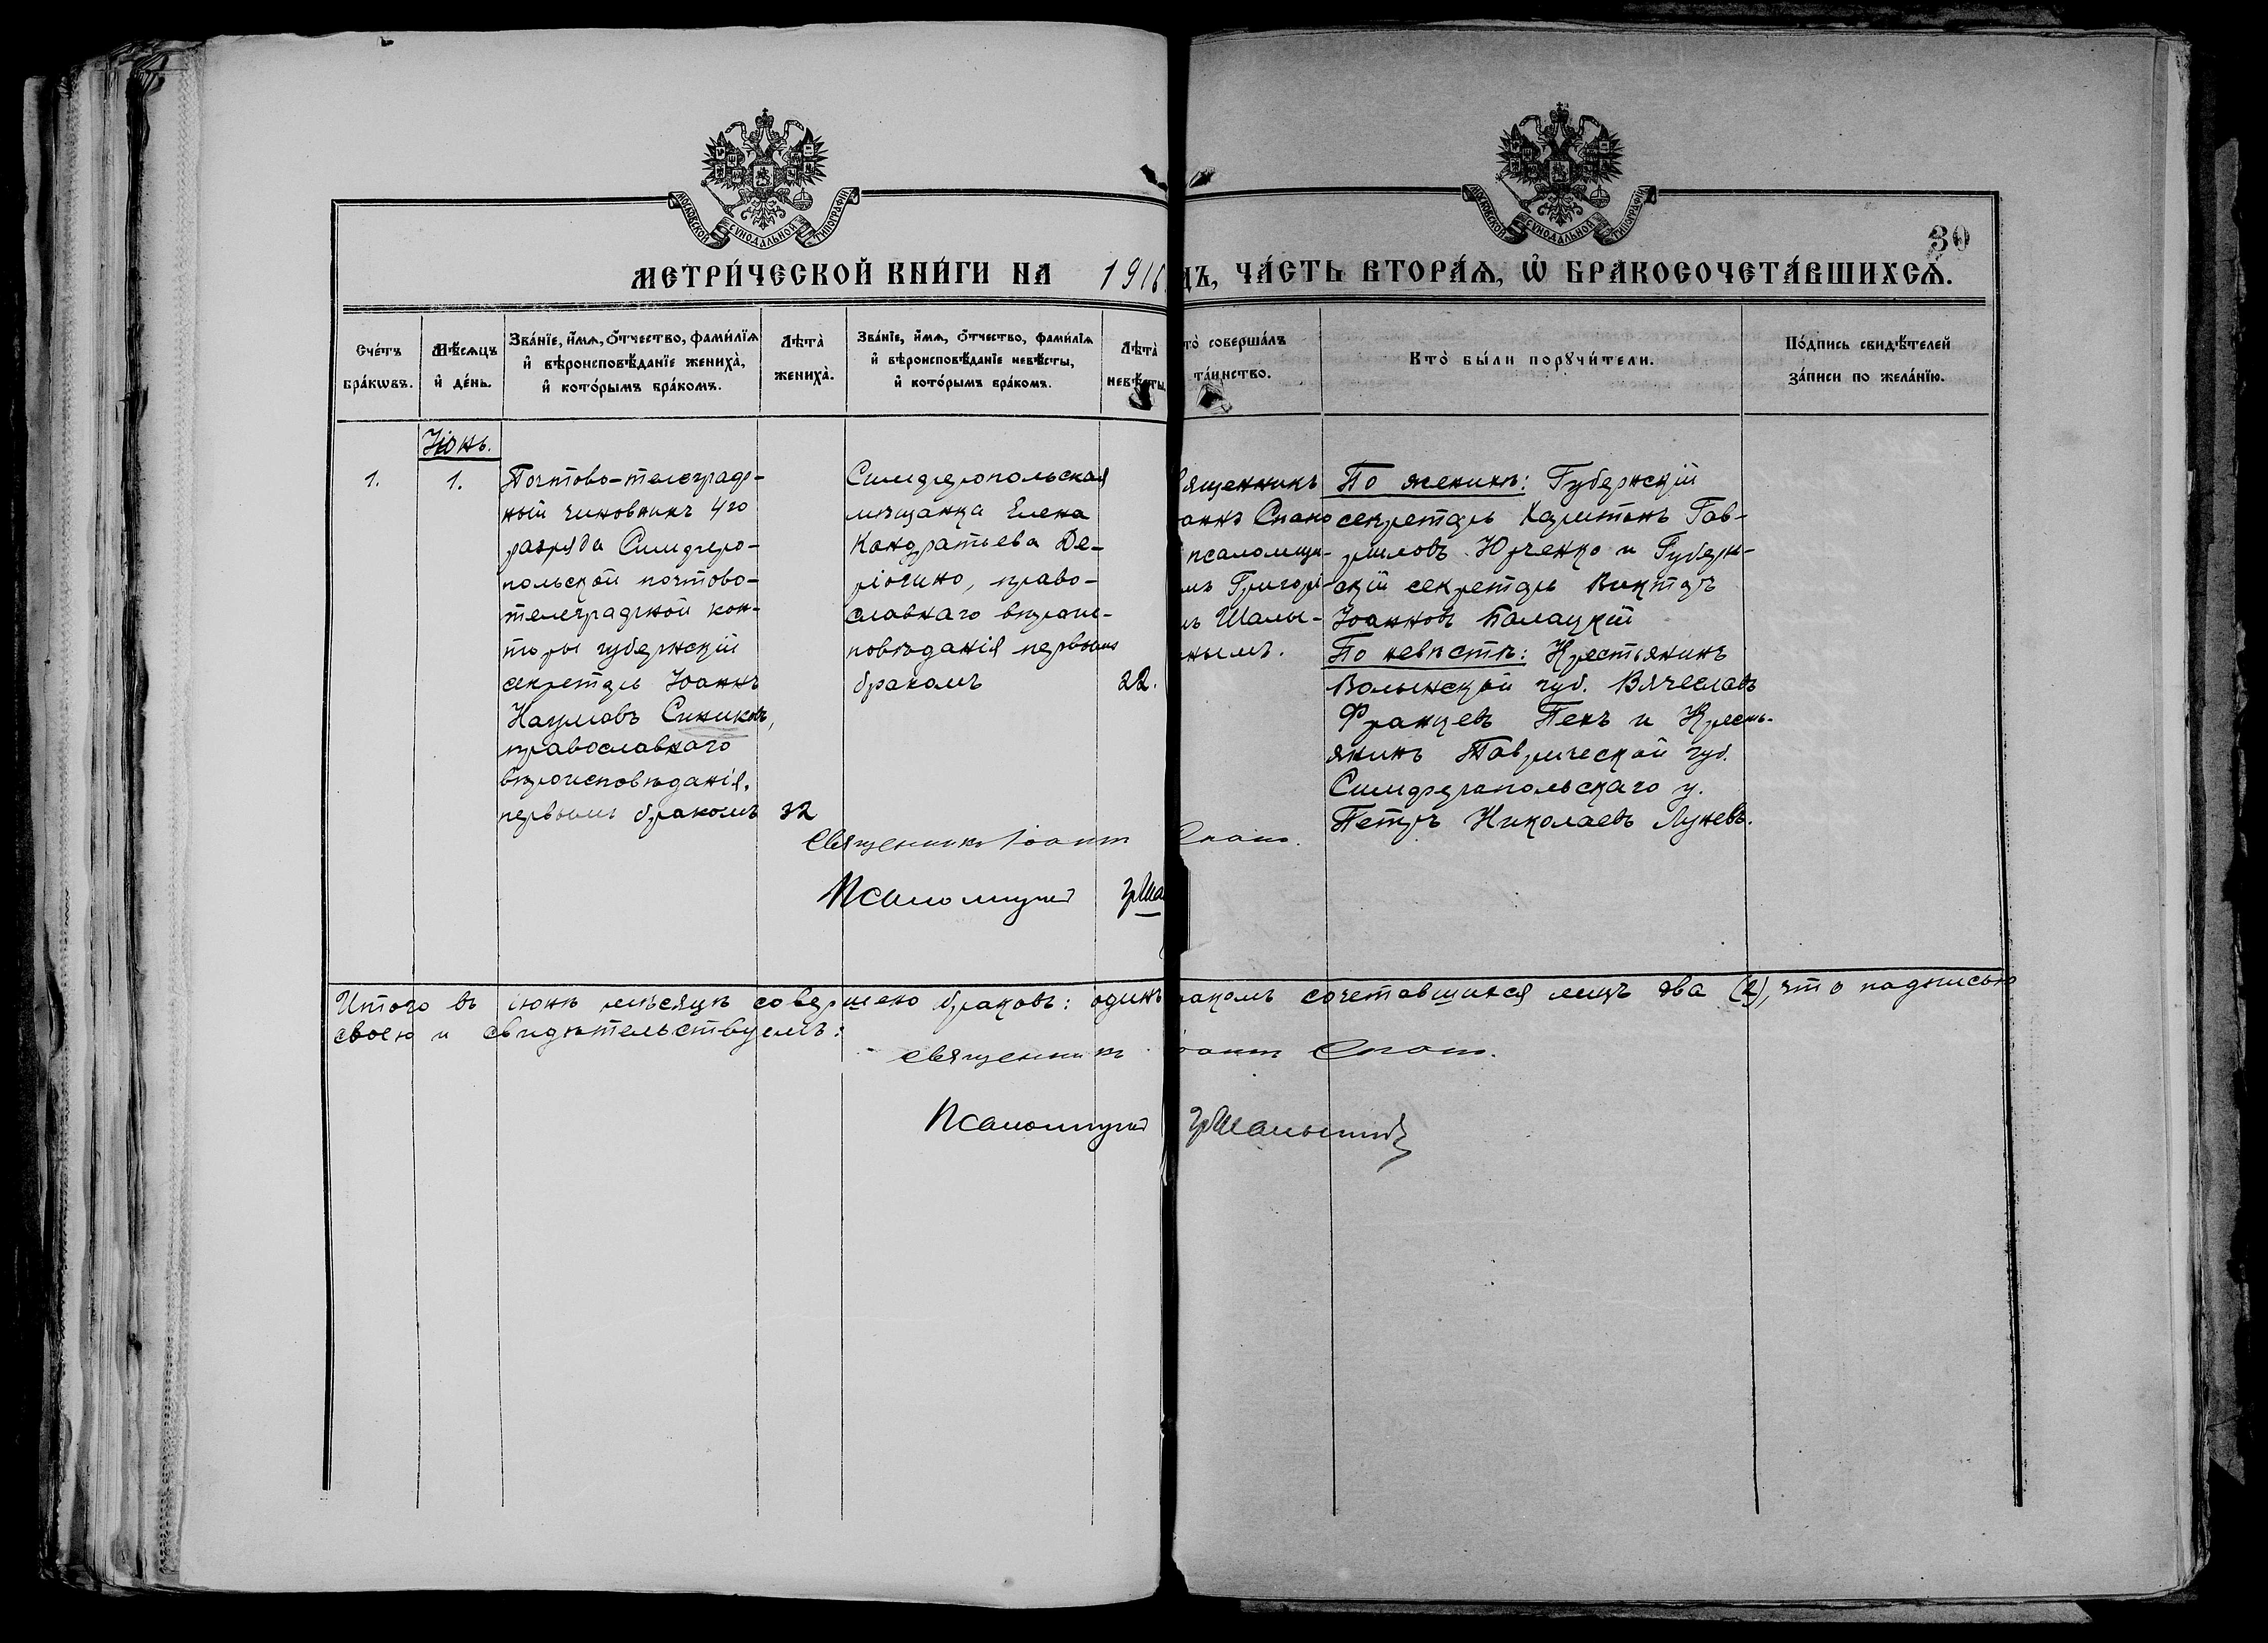 МОСКОВСКОЙ СѴНОДАЛЬНОЙ ТИПОГРАФІИ
МОСКОВСКОЙ СѴНОДАЛЬНОЙ ТИПОГРАФІИ
30
МЕТРИ́ЧЕСКОЙ КНИ́ГИ НА 1916 ДЪ, ЧА́СТЬ ВТОРА́Ѧ, Ѡ҆ БРАКОСОЧЕТА́ВШИХСѦ.
Сче́тъ
бра́кѡвъ.
Мѣ́сѧцъ
и҆ де́нь.
Зва́нїе, и҆́мѧ, ѻ҆́тчество, фами́лїѧ
и҆ вѣроисповѣ́данїе жениха̀,
и҆ кото́рымъ бра́комъ.
Лѣта̀
жениха̀.
Зва́нїе, и҆́мѧ, ѻ҆́тчество, фами́лїѧ
и҆ вѣроисповѣ́данїе невѣ́сты,
и҆ кото́рымъ бра́комъ.
Лѣта̀
невѣ́сты.
то̀ соверша́лъ
та́инство.
Кто̀ бы́ли порꙋчи́тели.
По́дпись свидѣ́телей
за́писи по жела́нїю.
Іюнь.
1.
1.
Почтово-телеграф-
ный чиновникъ 4го
разряда Симферо-
польской почтово-
телеграфной кон-
торы губернскій
секретарь Іоаннъ
Наумовъ Синиковъ,
православнаго
вѣроисповѣданія,
первымъ бракомъ
32
Симферопольская
мѣщанка Елена
Кондратьева Де-
рюгино, право-
славнаго вѣроис-
повѣданія первымъ
бракомъ
22.
вященникъ
оаннъ Спано
псаломщи-
мъ Григорі-
мъ Шалы-
нымъ.
По женихѣ: Губернскій
секретарь Харитонъ Гав-
риловъ Юрченко и Губерн-
скій секретарь Викторъ
Іоанновъ Балацкій
По невѣстѣ: Крестьянинъ
Волынской губ. Вячеславъ
Францевъ Пекъ и Кресть-
янинъ Таврической губ.
Симферопольскаго у.
Петръ Николаевъ Луневъ.
Священникъ Іоаннъ Спано.
Псаломщикъ ГрШа
Итого въ іюнѣ мѣсяцѣ совершено браковъ: одинъ ракомъ сочетавшихся лицъ два (2), что подписью
своею и свидѣтельствуемъ:
Священникъ оаннъ Спано.
Псаломщикъ ГрШалынинъ